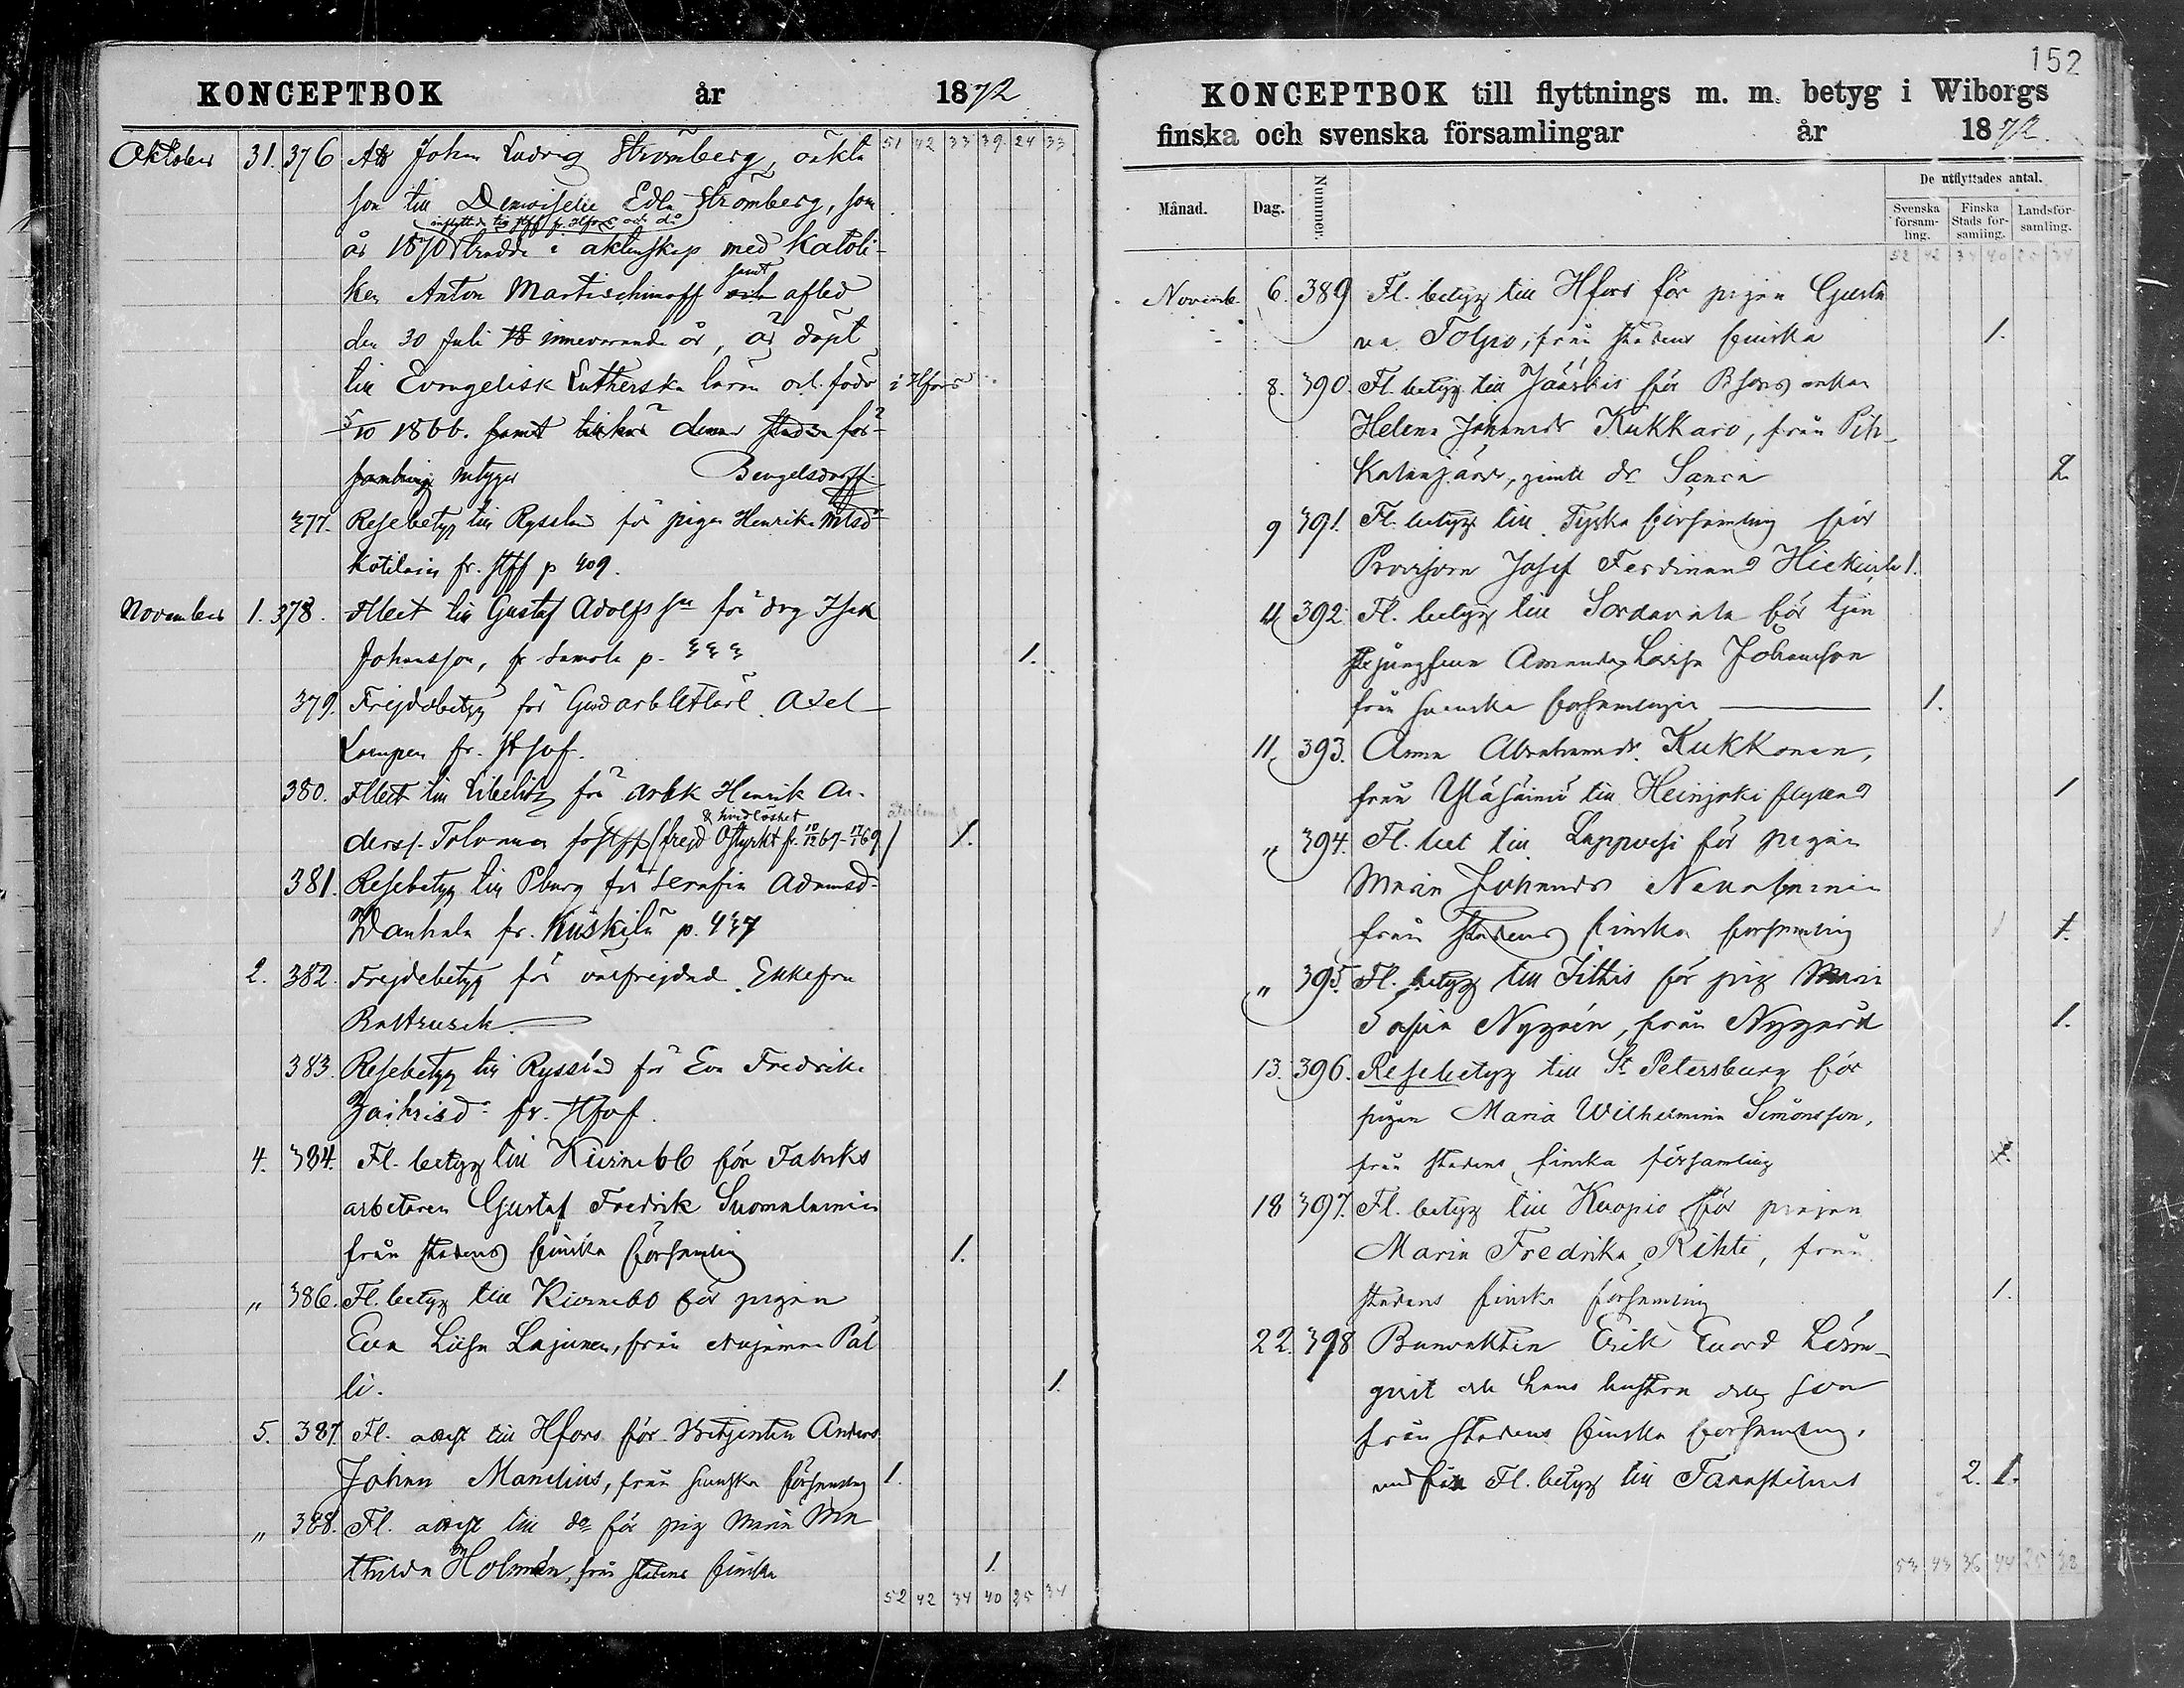 KONCEPTBOK år 1872
Oktober 31. 376 Att Johan Ludvig Strömberg, oäkta 51 42 33 39 24 33
son till Demoiselle Edla Strömberg, som
inflyttat till stff fr. Hfors och då
år 1870 trädde i äktenskap med Katoli-
ken Anton Martischinoff samt afled
den 30 Juli innevarande år, är döpt
till Evangelisk Lutherska läran och född i Hfors
5/10 1866. samt denna stadens för-
samling betygar Bengelsdorff
377. Resebetyg till Ryssland för pigan Henrika Mtsdr
Kotilain fr. stff p 409.
November 1. 378. Flbet till Gustaf Adolfs sn för drg Isak
Johansson, fr Samola p. 333 1.
379. Frejdebetyg för Axel
Lampen fr.
380. Flbet till Libelitz för arbk Henrik An-
& hvidlöshet
derss. Tolvanen (frejd Ostyrkt fr. 10/12 67 - 17/1 69) 1.
381. Resebetyg till Pburg för Serafia Adamsdr
Wanhala fr. Kiiskilä p. 437
2. 382. Frejdebetyg för välfrejdad Enkefru
Rattrusch
383. Resebetyg till Ryssland för Eva Fredrika
384. 4. Fl. betyg till Kivinebb för Fabriks
arbetaren Gustaf Fredrik Suomalainen
från stadens finska församling 1.
„ 386. Fl. betyg till Kivinebb för pigan
Eva Lisa Lajunen, från Nujamaa Päl
li. 1.
5. 387. Fl. attest till Hfors för Anders
Johan Mandlius, från svenska församling 1.
„ 388. Fl. attest till do för pig Maria Ma
thilda Holmén, från stadens finska 1.
52 42 34 40 25 34
152
KONCEPTBOK till flyttnings m. m. betyg i Wiborgs
finska och svenska församlingar år 1872.
Månad. Dag. Nummer. De utflyttades antal.
Svenska försam-ling. Finska Stads för-samling. Landsför-samling.
52 42 34 40 25 34
Novemb. 6. 389 Fl. betyg till Hfors för pigan Gusta
va Tolpo, från stadens finska 1.
8. 390. Fl. betyg till Jääskis för enkan
Helena Johansdr Kukkaro, från Pih-
kalanjärvi, jemte dr Sanna 2.
9 391. Fl. betyg till Tyska församling för
Provisorn Josef Ferdinand 1.
11 392. Fl. betyg till Sordavala för tjen
stejungfrun Amanda Lovisa Johansson
från svenska församlingen 1.
11. 393. Anna Abrahamsdr. Kukkonen,
från Yläsäiniö till Heinjoki flyttad 1
„ 394. Fl. bet till Lappvesi för pigan
Maria Johansdr Nevalainen
från stadens finska församling 1 1.
„ 395. Fl. betyg till Sittis för pig Maria
Sofia Nygrén, från Nygård 1.
13. 396. Resebetyg till St Petersburg för
pigan Maria Wilhelmina Simonsson,
från stadens finska församling
18 397. Fl. betyg till Kuopio för pigan
Maria Fredrika Rihti, från
stadens finska församling 1.
22. 398 Banvakten Erik Evard Löfm-
qvist och hans hustru och son
från stadens finska församling,
med Fl. betyg till Tavastehus 2. 1.
53 43 36 44 25 38